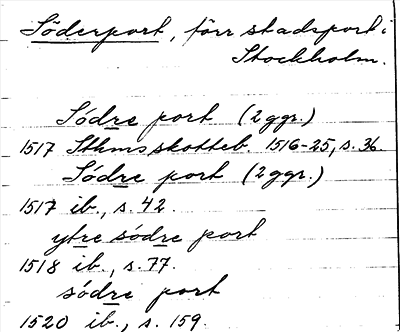 Söderport, förr stadsport i
Stockholm.
Södre port (2 ggr.)
1517 Sthms skotteb. 1516-25, s. 36.
Södre port (2 ggr.)
1517 ib., s. 42.
ytre södre port
1518 ib., s. 77.
södre port
1520 ib., s. 159.